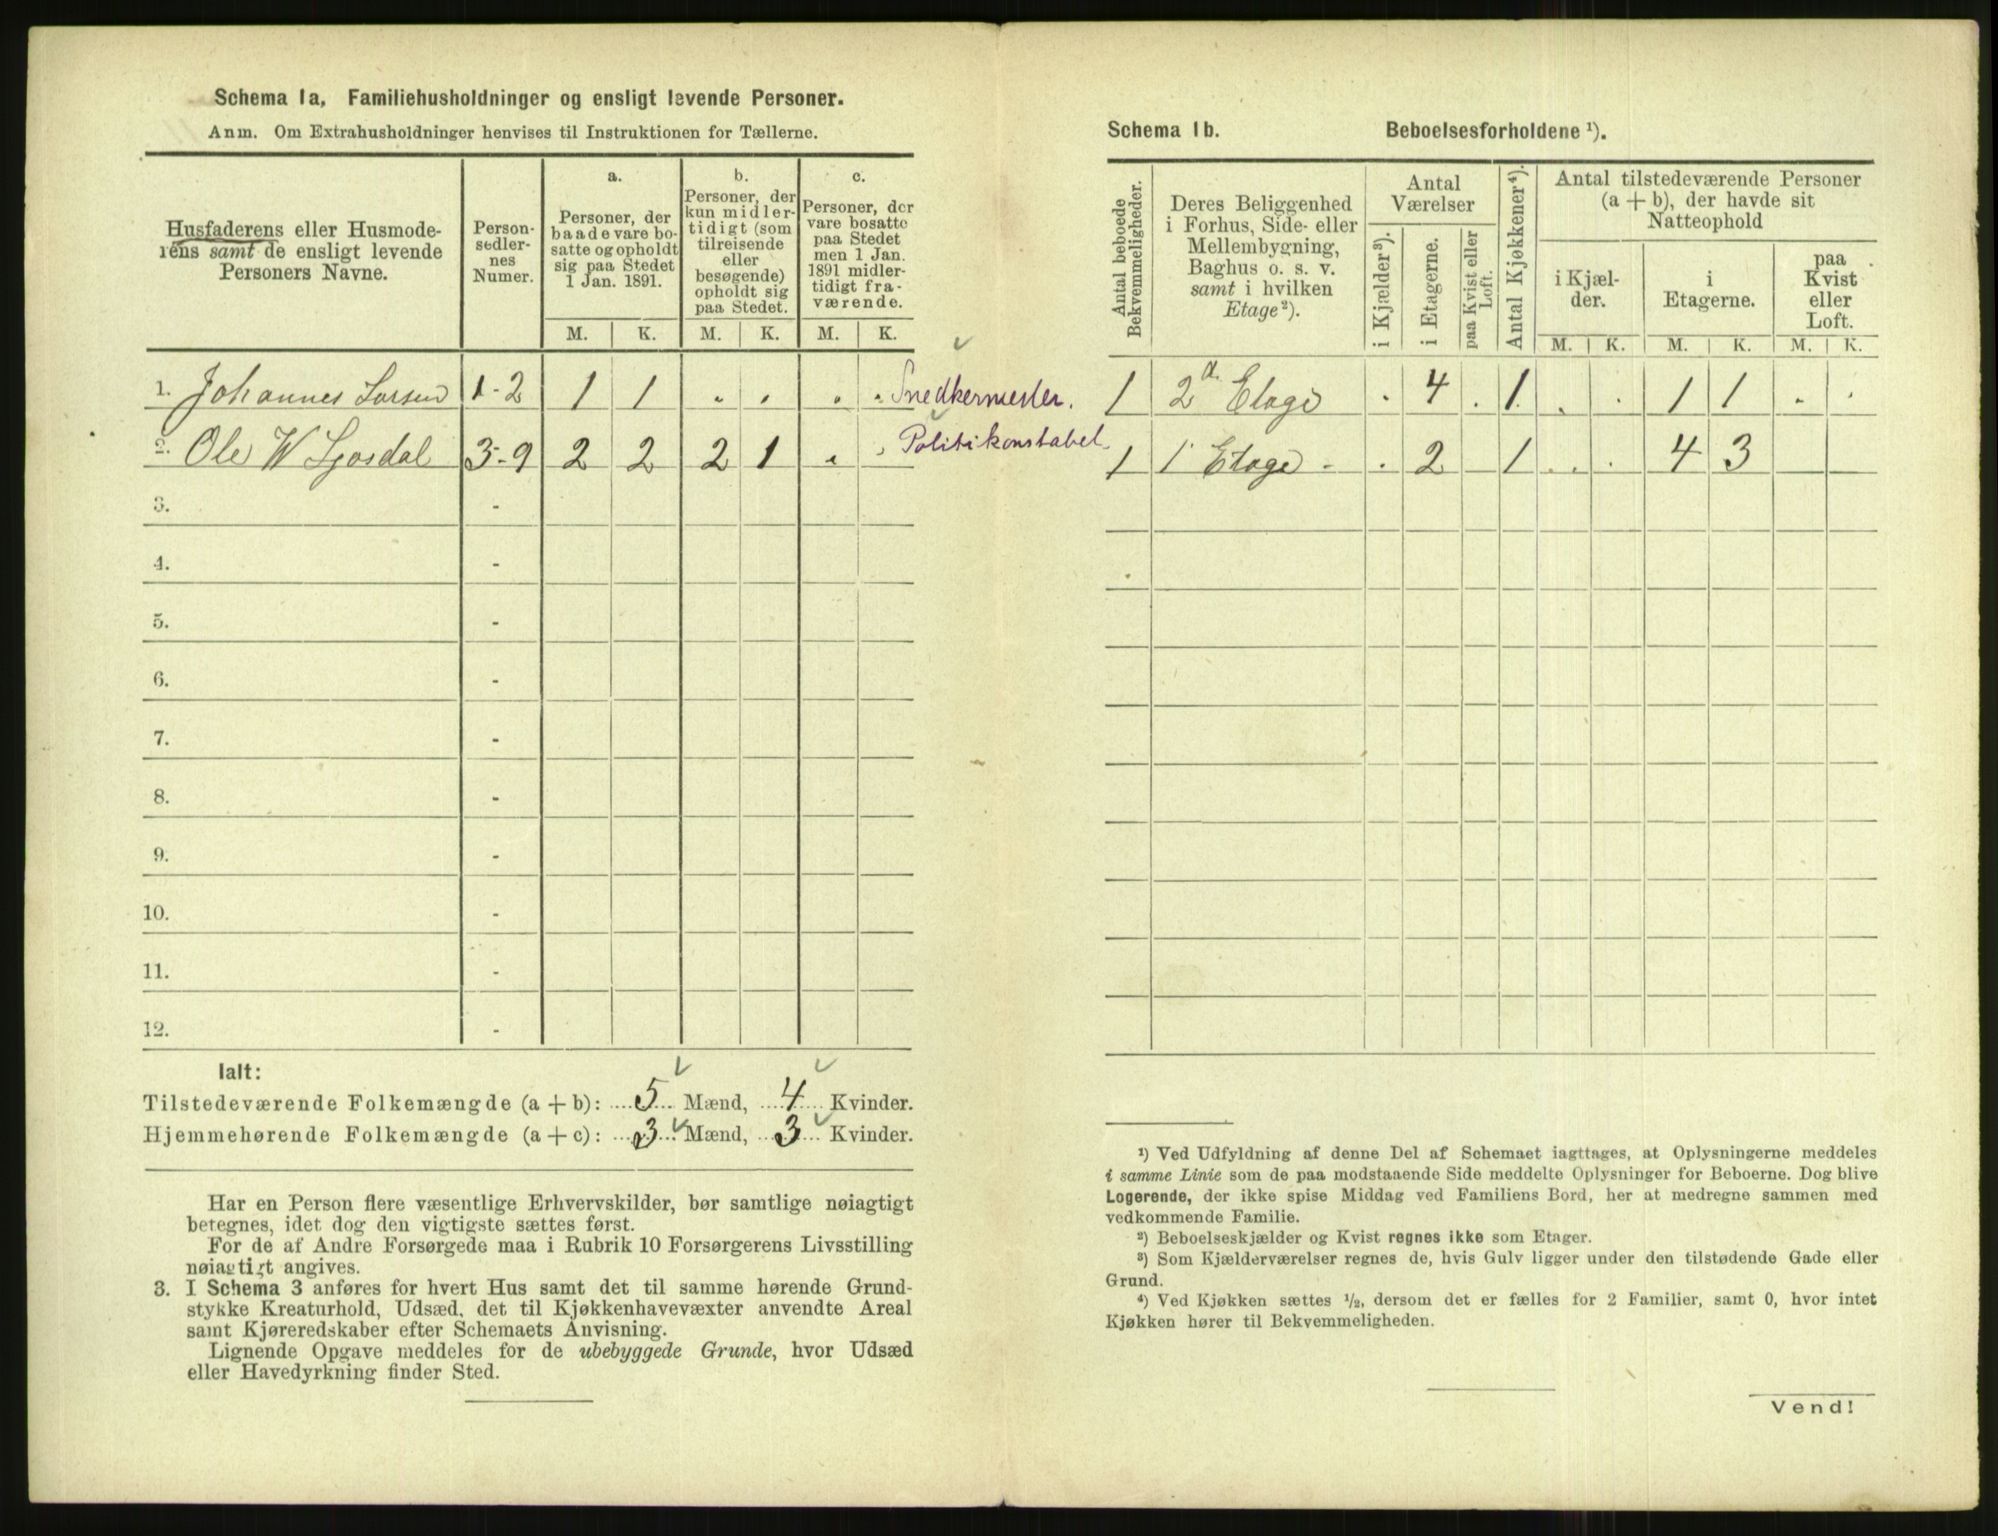 Schema 1a, Familiehusholdninger og ensligt levende Personer.
Anm. Om Extrahusholdninger henvises til Instruktionen for Tællerne.
Husfaderens eller Husmode-
rens samt de ensligt levende
Personers Navne.
Person-
sedler-
nes
Numer.
a.
Personer, der
baade vare bo-
satte og opholdt
sig paa Stedet
1 Jan. 1891.
b.
Personer, der
kun midler-
tidigt (som
tilreisende
eller
besøgende)
opholdt sig
paa Stedet.
c.
Personer, der
vare bosatte
paa Stedet
men 1 Jan.
1891 midler-
tidigt fra-
værende.
M. K. M. K. M. K.
1. Johannes Larsen 1-2 1 1 . . . . Snedkermester.
2. Ole W 3-9 2 2 2 1 . . Politikonstabel
3. -
4. -
5. -
6. -
7. -
8. -
9. -
10. -
11. -
12. -
Ialt:
Tilstedeværende Folkemængde (a + b): 5 Mænd, 4 Kvinder.
Hjemmehørende Folkemængde (a + c): 3 Mænd, 3 Kvinder.
Har en Person flere væsentlige Erhvervskilder, bør samtlige nøiagtigt
betegnes, idet dog den vigtigste sættes først.
For de af Andre Forsørgede maa i Rubrik 10 Forsørgerens Livsstilling
nøiagtigt angives.
3. I Schema 3 anføres for hvert Hus samt det til samme hørende Grund-
stykke Kreaturhold, Udsæd, det til Kjøkkenhavevæxter anvendte Areal
samt Kjøreredskaber efter Schemaets Anvisning.
Lignende Opgave meddeles for de ubebyggede Grunde, hvor Udsæd
eller Havedyrkning finder Sted.
Schema 1b. Beboelsesforholdene ¹).
Antal beboede
Bekvemmeligheder.
Deres Beliggenhed
i Forhus, Side- eller
Mellembygning,
Baghus o. s. v.
samt i hvilken
Etage ²).
Antal
Værelser
i Kjælder ³).
i Etagerne.
paa Kvist eller
Loft.
Antal Kjøkkener ⁴).
Antal tilstedeværende Personer
(a + b), der havde sit
Natteophold
i Kjæl-
der.
i
Etagerne.
paa
Kvist
eller
Loft.
M. K. M. K. M. K.
1 2d Etage . 4 . 1 . . 1 1 . .
1 1 Etage - . 2 1 . . 4 3
¹) Ved Udfyldning af denne Del af Schemaet iagttages, at Oplysningerne meddeles
i samme Linie som de paa modstaaende Side meddelte Oplysninger for Beboerne. Dog blive
Logerende, der ikke spise Middag ved Familiens Bord, her at medregne sammen med
vedkommende Familie.
²) Beboelseskjælder og Kvist regnes ikke som Etager.
³) Som Kjælderværelser regnes de, hvis Gulv ligger under den tilstødende Gade eller
Grund.
⁴) Ved Kjøkken sættes ½, dersom det er fælles for 2 Familier, samt 0, hvor intet
Kjøkken hører til Bekvemmeligheden.
Vend!